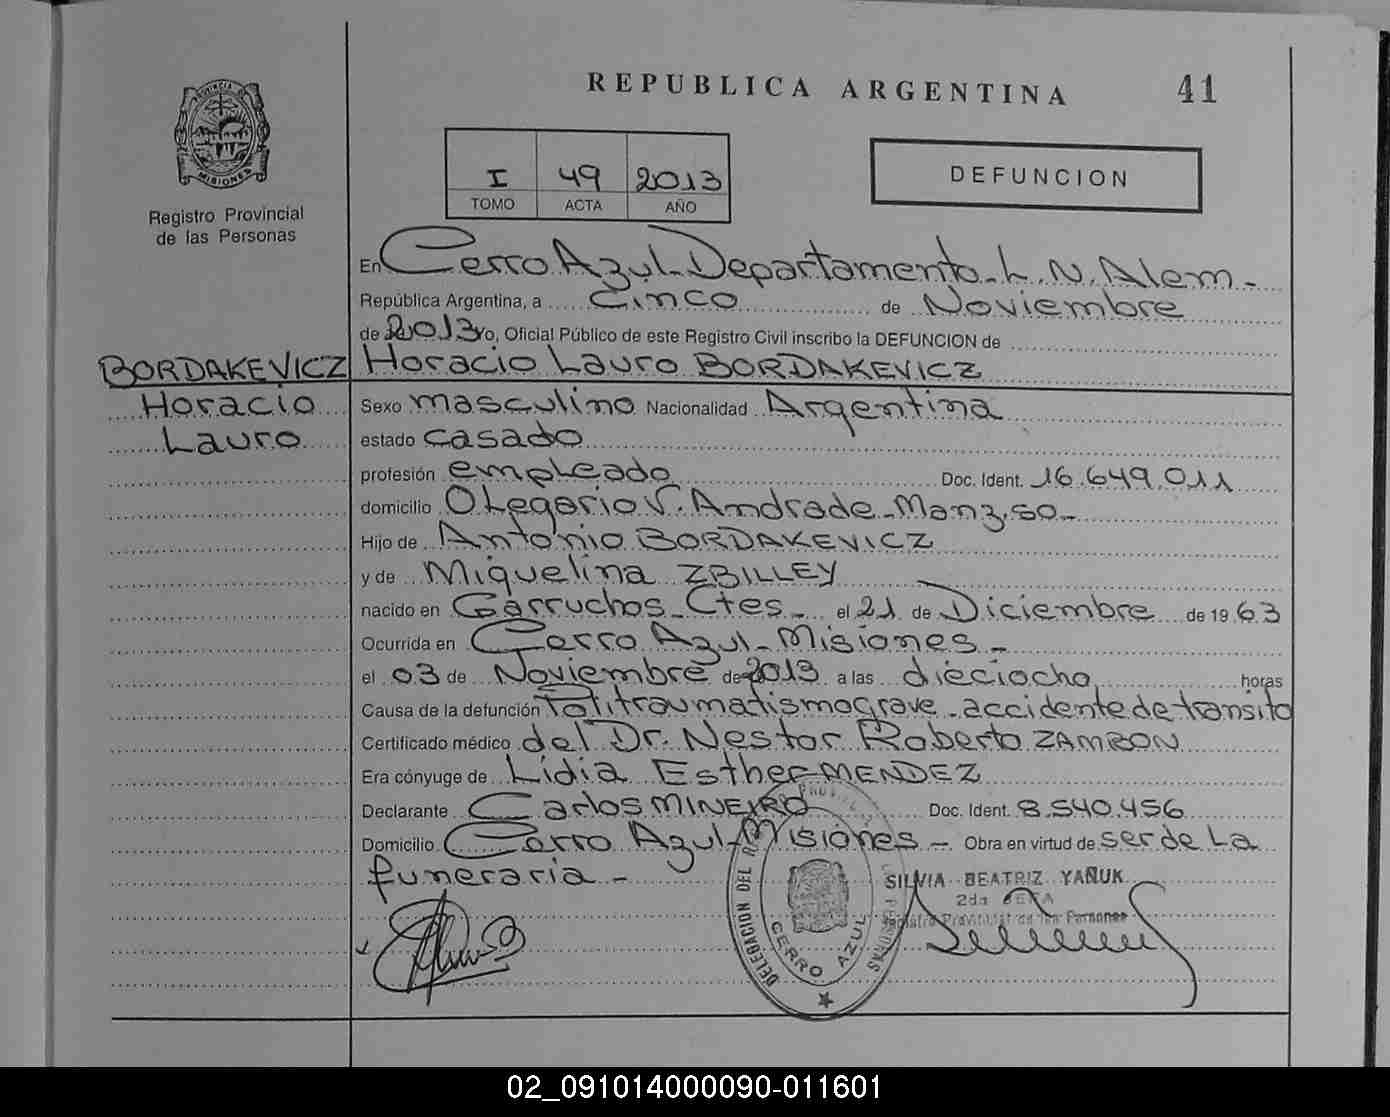 REPUBLICA ARGENTINA
41
PROVINCIA DE
MISIONES
Registro Provincial
de las Personas
I 49 2013
TOMO ACTA AÑO
DEFUNCION
En Cerro Azul - Departamento - L. N. Alem -
República Argentina, a cinco de Noviembre
de 2013 Yo, Oficial Público de este Registro Civil inscribo la DEFUNCION de
BORDAKEVICZ Horacio Lauro BORDAKEVICZ
Horacio Sexo masculino Nacionalidad Argentina
Lauro estado casado
profesión empleado Doc. Ident. 16.649.011
domicilio Olegario V. Andrade - Manz. 50 -
Hijo de Antonio BORDAKEVICZ
y de Miquelina ZBILLEY
nacido en Garruchos - Ctes - el 21 de Diciembre de 19 63
Ocurrida en Cerro Azul - Misiones -
el 03 de Noviembre de 2013 a las dieciocho horas
Causa de la defunción Politraumatismo grave - accidente de transito
Certificado médico del Dr. Nestor Roberto ZAMBON
Era cónyuge de Lidia Esther MENDEZ
Declarante Carlos MINEIRO Doc. Ident. 8.540.456
Domicilio Cerro Azul - Misiones - Obra en virtud de ser de La
funeraria -
DELEGACION DEL
CERRO AZUL
SILVIA BEATRIZ YAÑUK
2da JEFA
Registro Provincial de las Personas
02_091014000090-011601